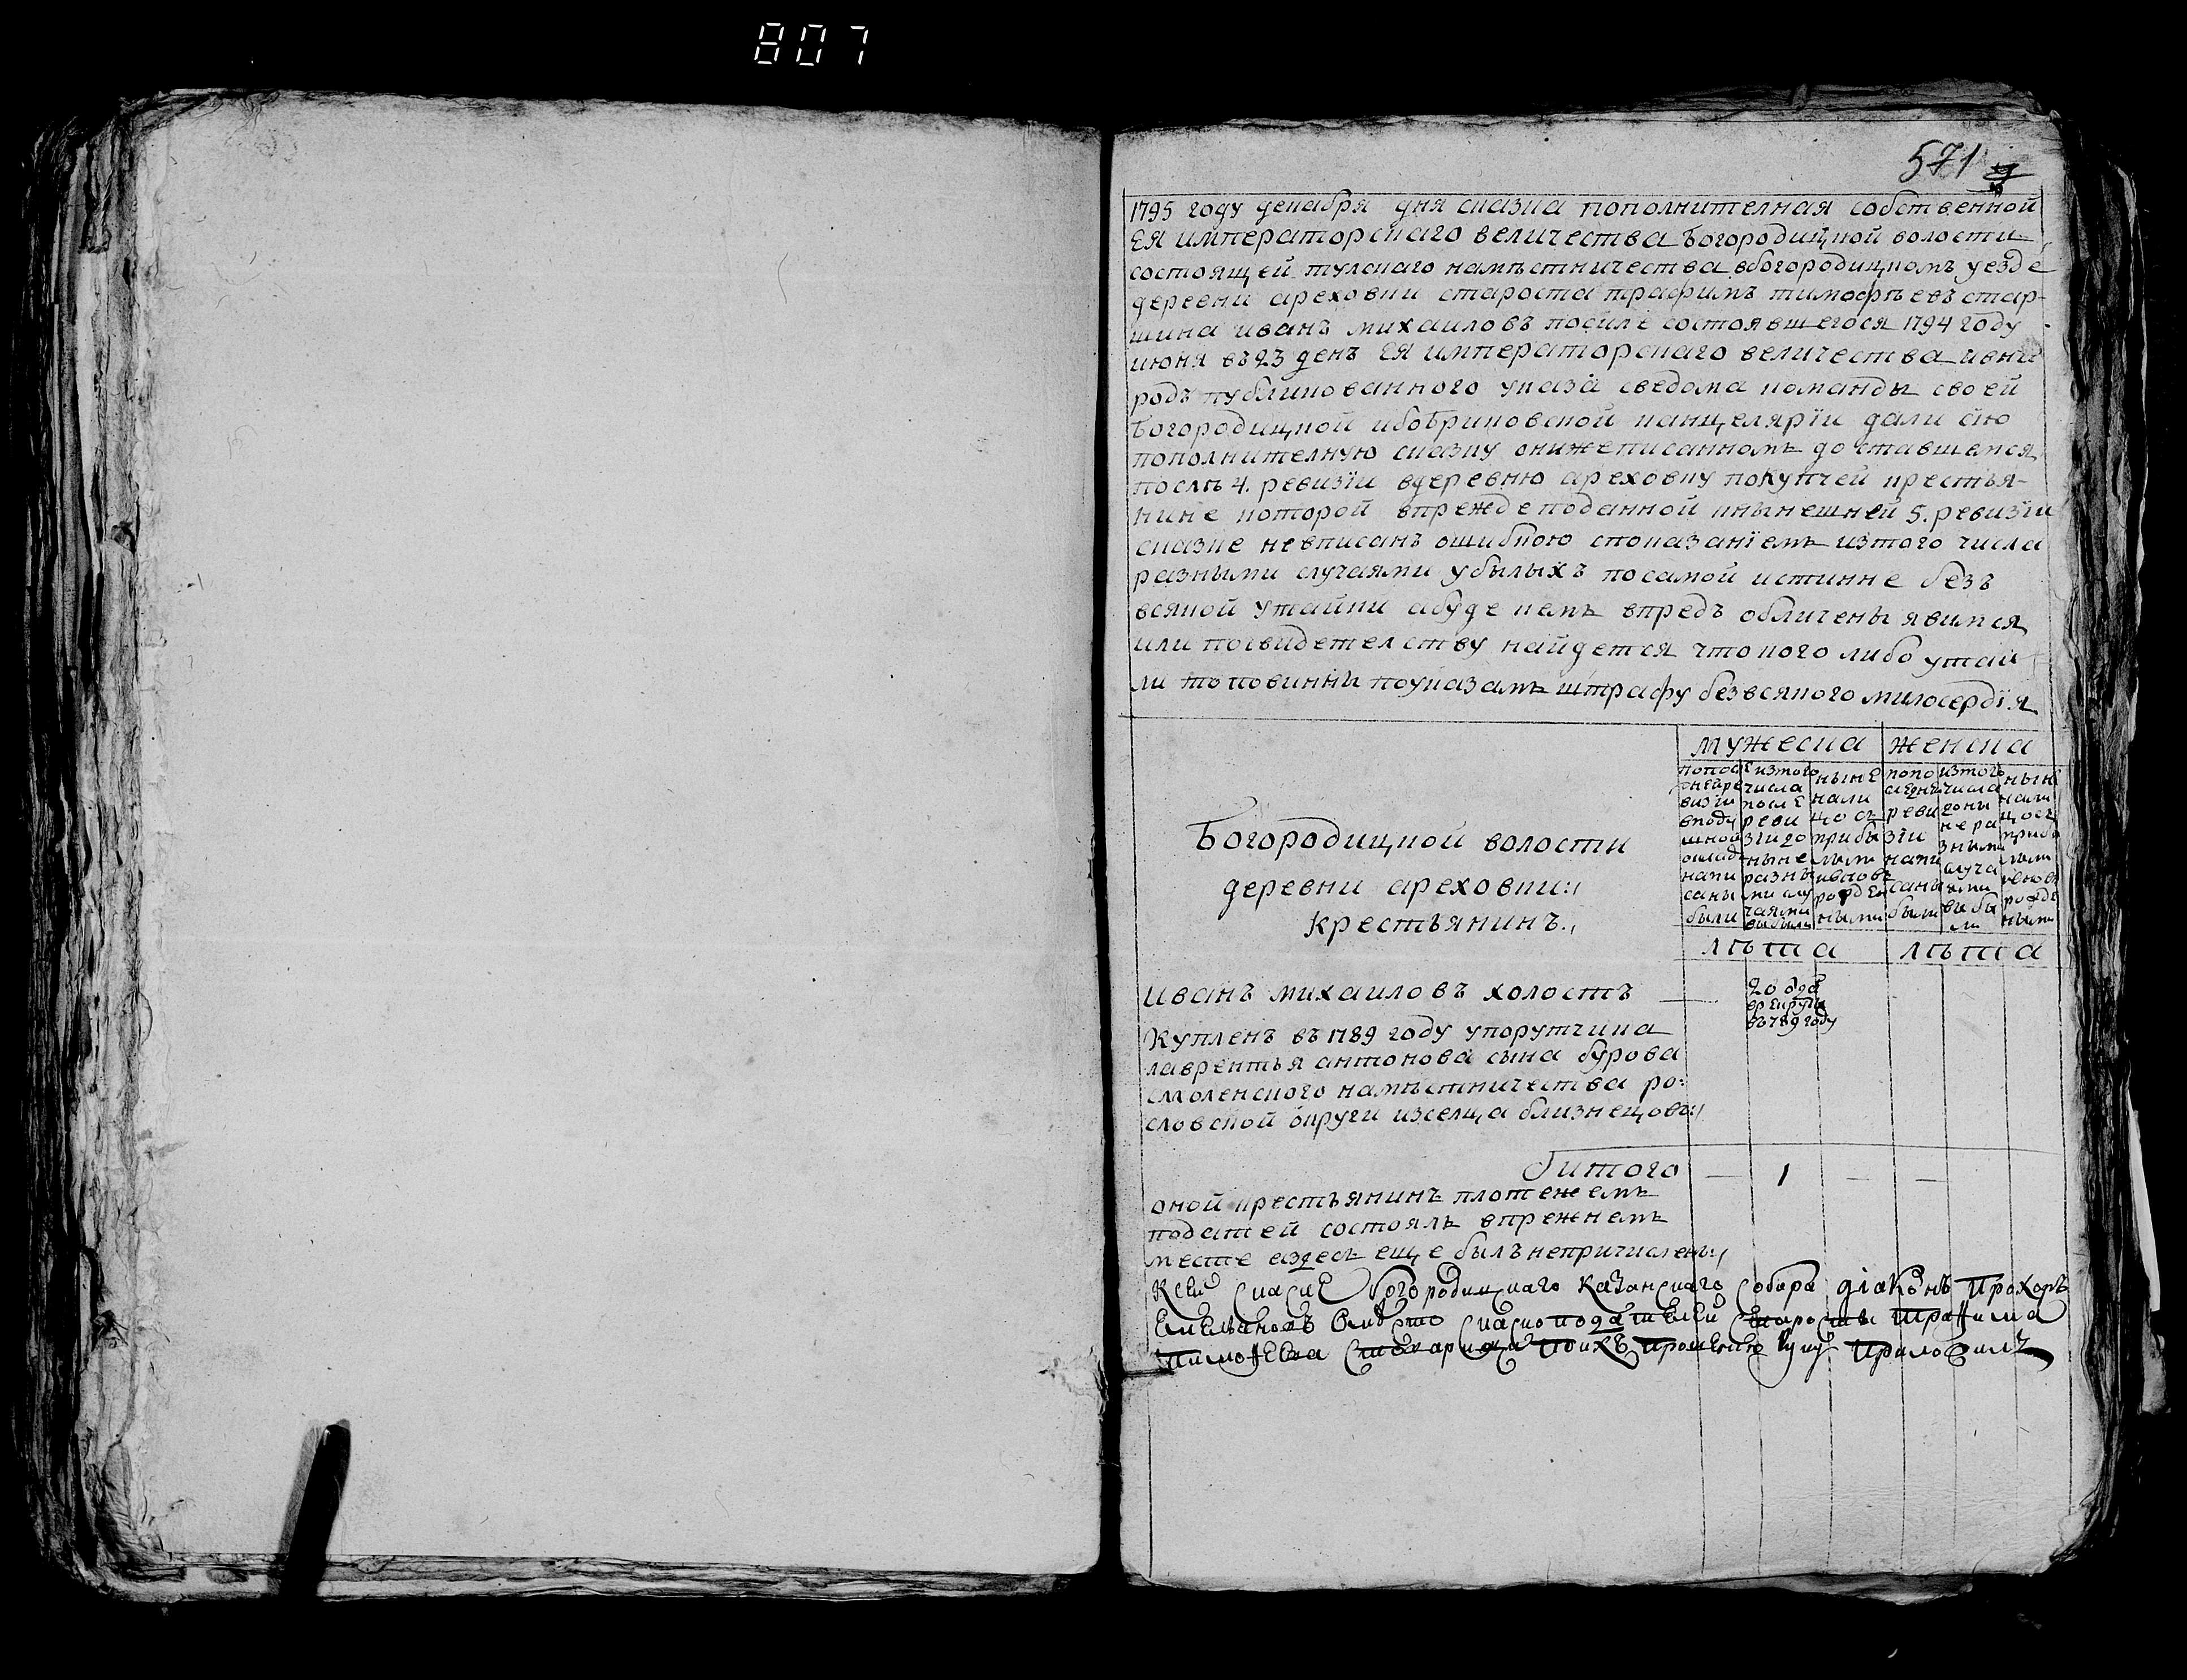 807
571
1795 году декабря дня сказка пополнителная собственной
Ея императорскаго величества Богородицкой волости
состоящей тулскаго намѣстничества вбогородицкомъ уезде
деревни ареховки староста трафимъ тимофѣевъ стар-
шина иванъ михаиловъ посиле состоявшегося 1794 году
июня въ 23 денъ Ея императорскаго величества
родъ публикованного указа сведома команды своей
Богородицкой ибобриковской канцелярїи дали сїю
пополнителную сказку онижеписанномъ доставшемся
послѣ 4. ревизїи вдеревню ареховку покупчей крестья-
нине которой впрежде поданной кнынешней 5. ревизїи
сказке невписанъ ошибкою споказанїемъ изтого числа
разными случаями убылыхъ посамой истинне безъ
всякой утайки абуде кемъ впредъ обличены явимся
или посвидетелству найдется что кого либо утаи
ли то повинни поуказамъ штрафу безвсякого милосердїя
мужеска женска
попоследнейревизїи вподушной окладъ написаны были
изтого числа после ревизїи до ныне разными случаями выбыли
ныне налицо съ прибылыми ивновь рожденными
попоследней ревизїи написаны были
изтого числа разными случаями выбыли
ныне налицо съ прибылыми вновь рожденными
лѣта лѣта
Богородицкой волости
деревни ареховки:
крестьянинъ.
Иванъ михаиловъ холостъ — 20
въ 789 году
Купленъ въ 1789 году упорутчика
лаврентья антонова сына бурова
смоленского намѣстничества ро:
словской округи изселца близнецовъ:
Итого — 1 — —
оной крестьянинъ плотежемъ
податей состоялъ впрежнемъ
месте аздесь еще былъ непричисленъ:
Ксей скаске Богородицкаго Казанскаго Собора дїаконъ Прохоръ
Емельяновъ вместо скаскоподателей старосты Трафима
Тимофеева поихъ прошению руку приложилъ